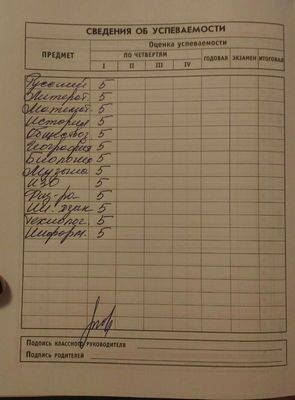 СВЕДЕНИЯ ОБ УСПЕВАЕМОСТИ
ПРЕДМЕТ
Оценка успеваемости
ПО ЧЕТВЕРТЯМ
ГОДОВАЯ
ЭКЗАМЕН
ИТОГОВАЯ
I II III IV
Русский 5
Литерат. 5
Математ. 5
История 5
Обществоз 5
География 5
Биология 5
Музыка 5
ИЗО 5
Физ-ра 5
Ин. язык 5
Технолог. 5
Информ. 5
Подпись классного руководителя
Подпись родителей